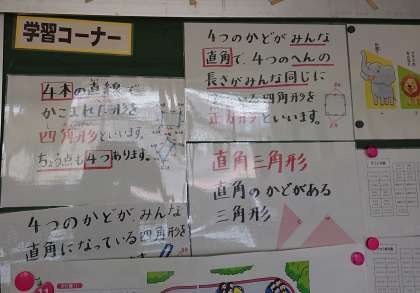 学習コーナー
4本の直線で
かこまれた形を
四角形といいます。
ちょう点も4つあります。
4つのかどが、みんな
直角で、4つのへんの
長さがみんな同じに
四角形を
正方形といいます。
直角三角形
直角のかどがある
三角形
4つのかどが、みんな
直角になっている四角形を